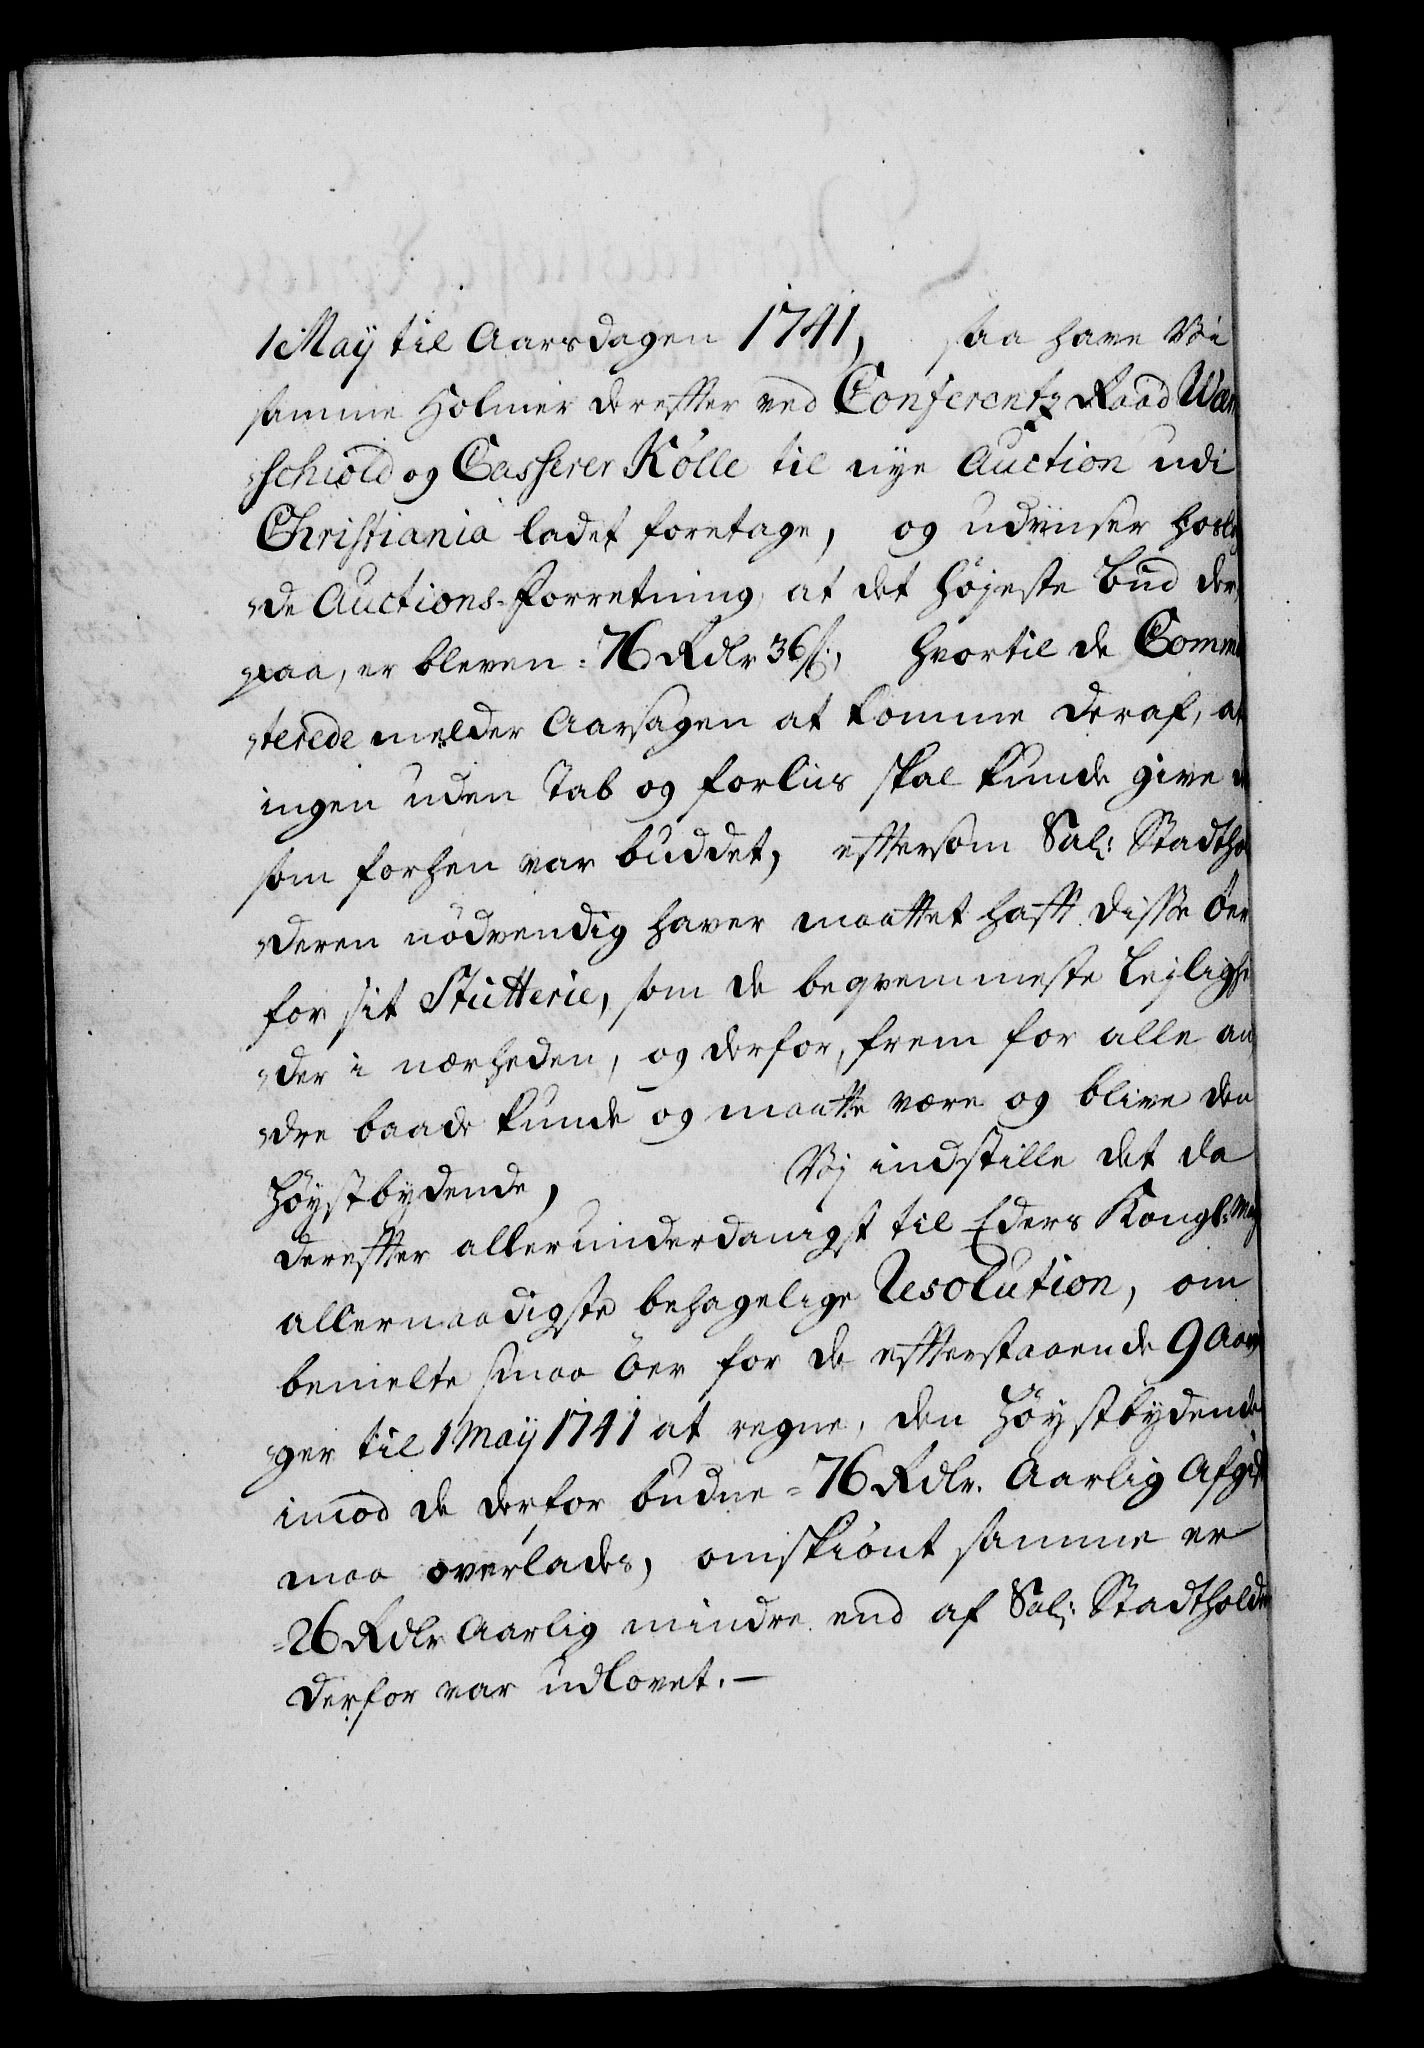 1 Maÿ til Aarsdagen 1741, saa have Vi
samme Holmer derefter ved Conferentz Raad Wærn
schiold og Casserer Kölle til nÿe Auction udi
Christiania ladet foretage, og udviiser hosleg
de Auctions-Forretning, at det höjeste Bud der
paa, er bleven: 76 Rdlr 36 ß:, hvortil de Commi
terede melder Aarsagen at komme deraf, at
ingen uden Tab og forliis skal kunde give d
som forhen var buddet, eftersom Sal: Stadthol
deren nödvendig haver maattet haft disse Öer
for sit Stutterie, som de beqvemmeste Lejlighe
der i nærheden, og derfor, frem for alle an
dre baade kunde og maatte være og blive den
Höÿstbÿdende, Vej indstille det da
derefter allerunderdanigst til Eders Kongl: May
allernaadigste behagelige Resolution, om
bemelte smaa Öer for de efterstaaende 9 Aar
ger til 1 Maÿ 1741 at regne, den Höÿstbÿdende
imod de derfor budne = 76 Rdlr. Aarlig Afgift
maa overlades, omskiönt samme er
= 26 Rdlr Aarlig mindre end af Sal: Stadtholder
derfor var udlovet. —